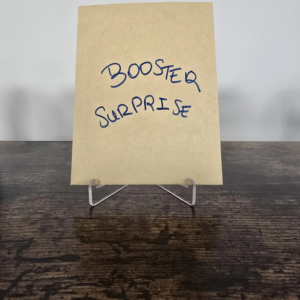 BOOSTER
SURPRISE